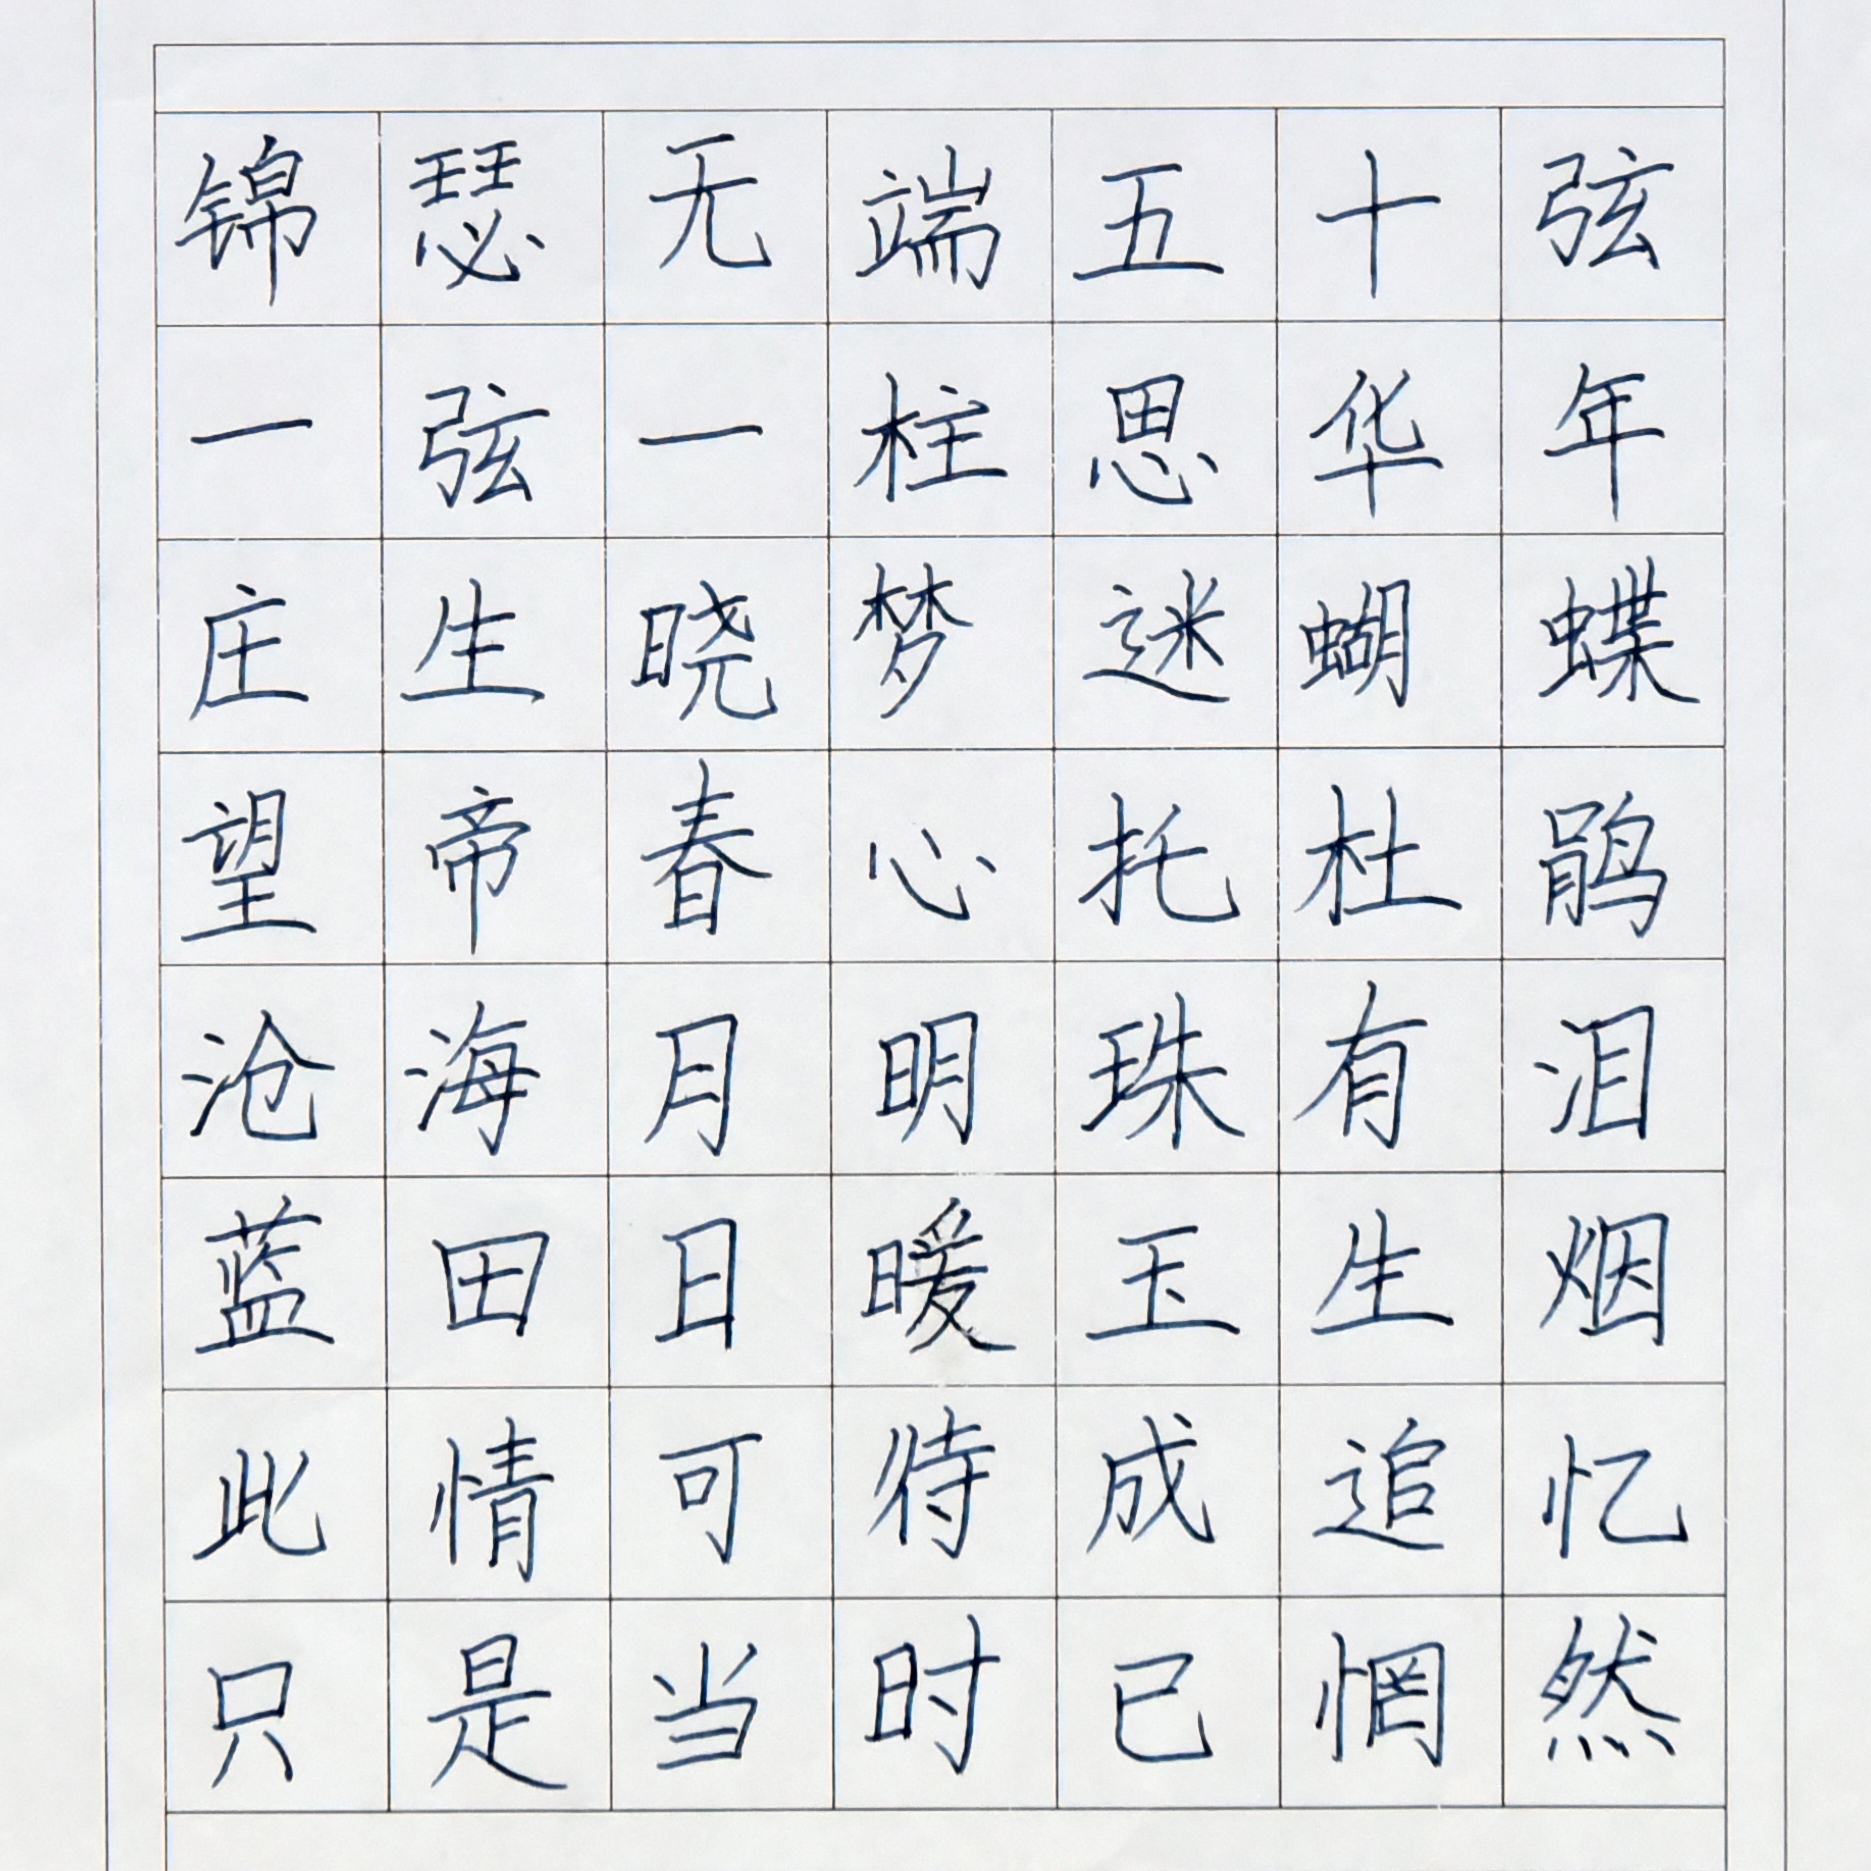 锦瑟无端五十弦
一弦一柱思华年
庄生晓梦迷蝴蝶
望帝春心托杜鹃
沧海月明珠有泪
蓝田日暖玉生烟
此情可待成追忆
只是当时已惘然